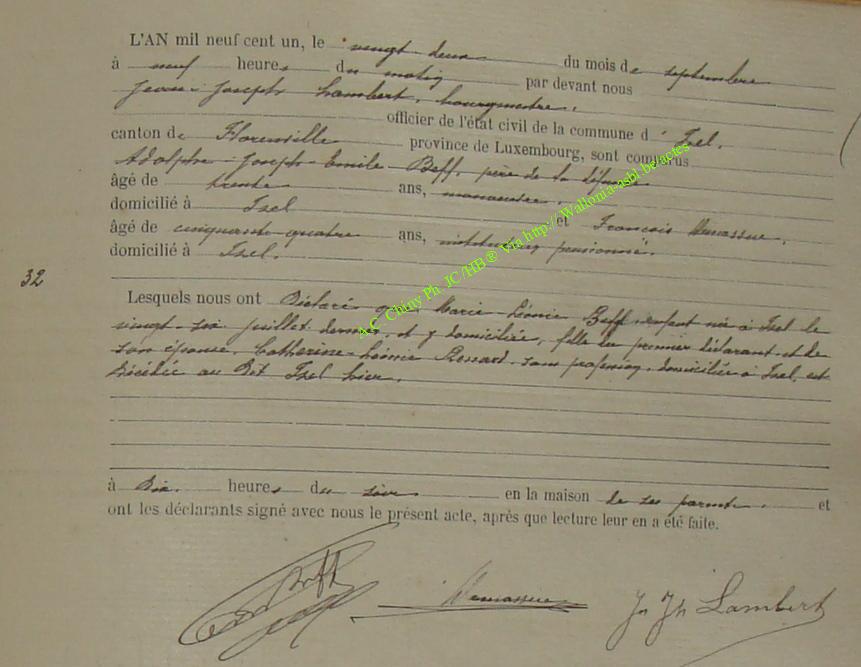 L'AN mil neuf cent un, le vingt deux du mois de septembre
à neuf heures du matin par devant nous
Jean-Joseph Lambert, bourgmestre,
officier de l'état civil de la commune d' Izel,
canton de Florenville province de Luxembourg, sont comparus
Adolphe-Joseph-Emile Beff, père de la défunte
âgé de trente ans, manoeuvre,
domicilié à Izel et François
âgé de cinquante quatre ans, instituteur pensionné,
domicilié à Izel.
32
Lesquels nous ont déclaré que Marie-Léonie Beff, enfant née à Izel le
vingt-six juillet dernier, et y domiciliée, fille du premier déclarant et de
son épouse, Catherine-Léonie sans profession, domiciliée à Izel, est
décédée au dit Izel hier,
à dix heures du soir en la maison de ses parents. et
ont les déclarants signé avec nous le présent acte, après que lecture leur en a été faite.
Beff Jh Jh Lambert
A.C. Chiny Ph. JC/HB® Via http://Wallonia-asbl.be/actes